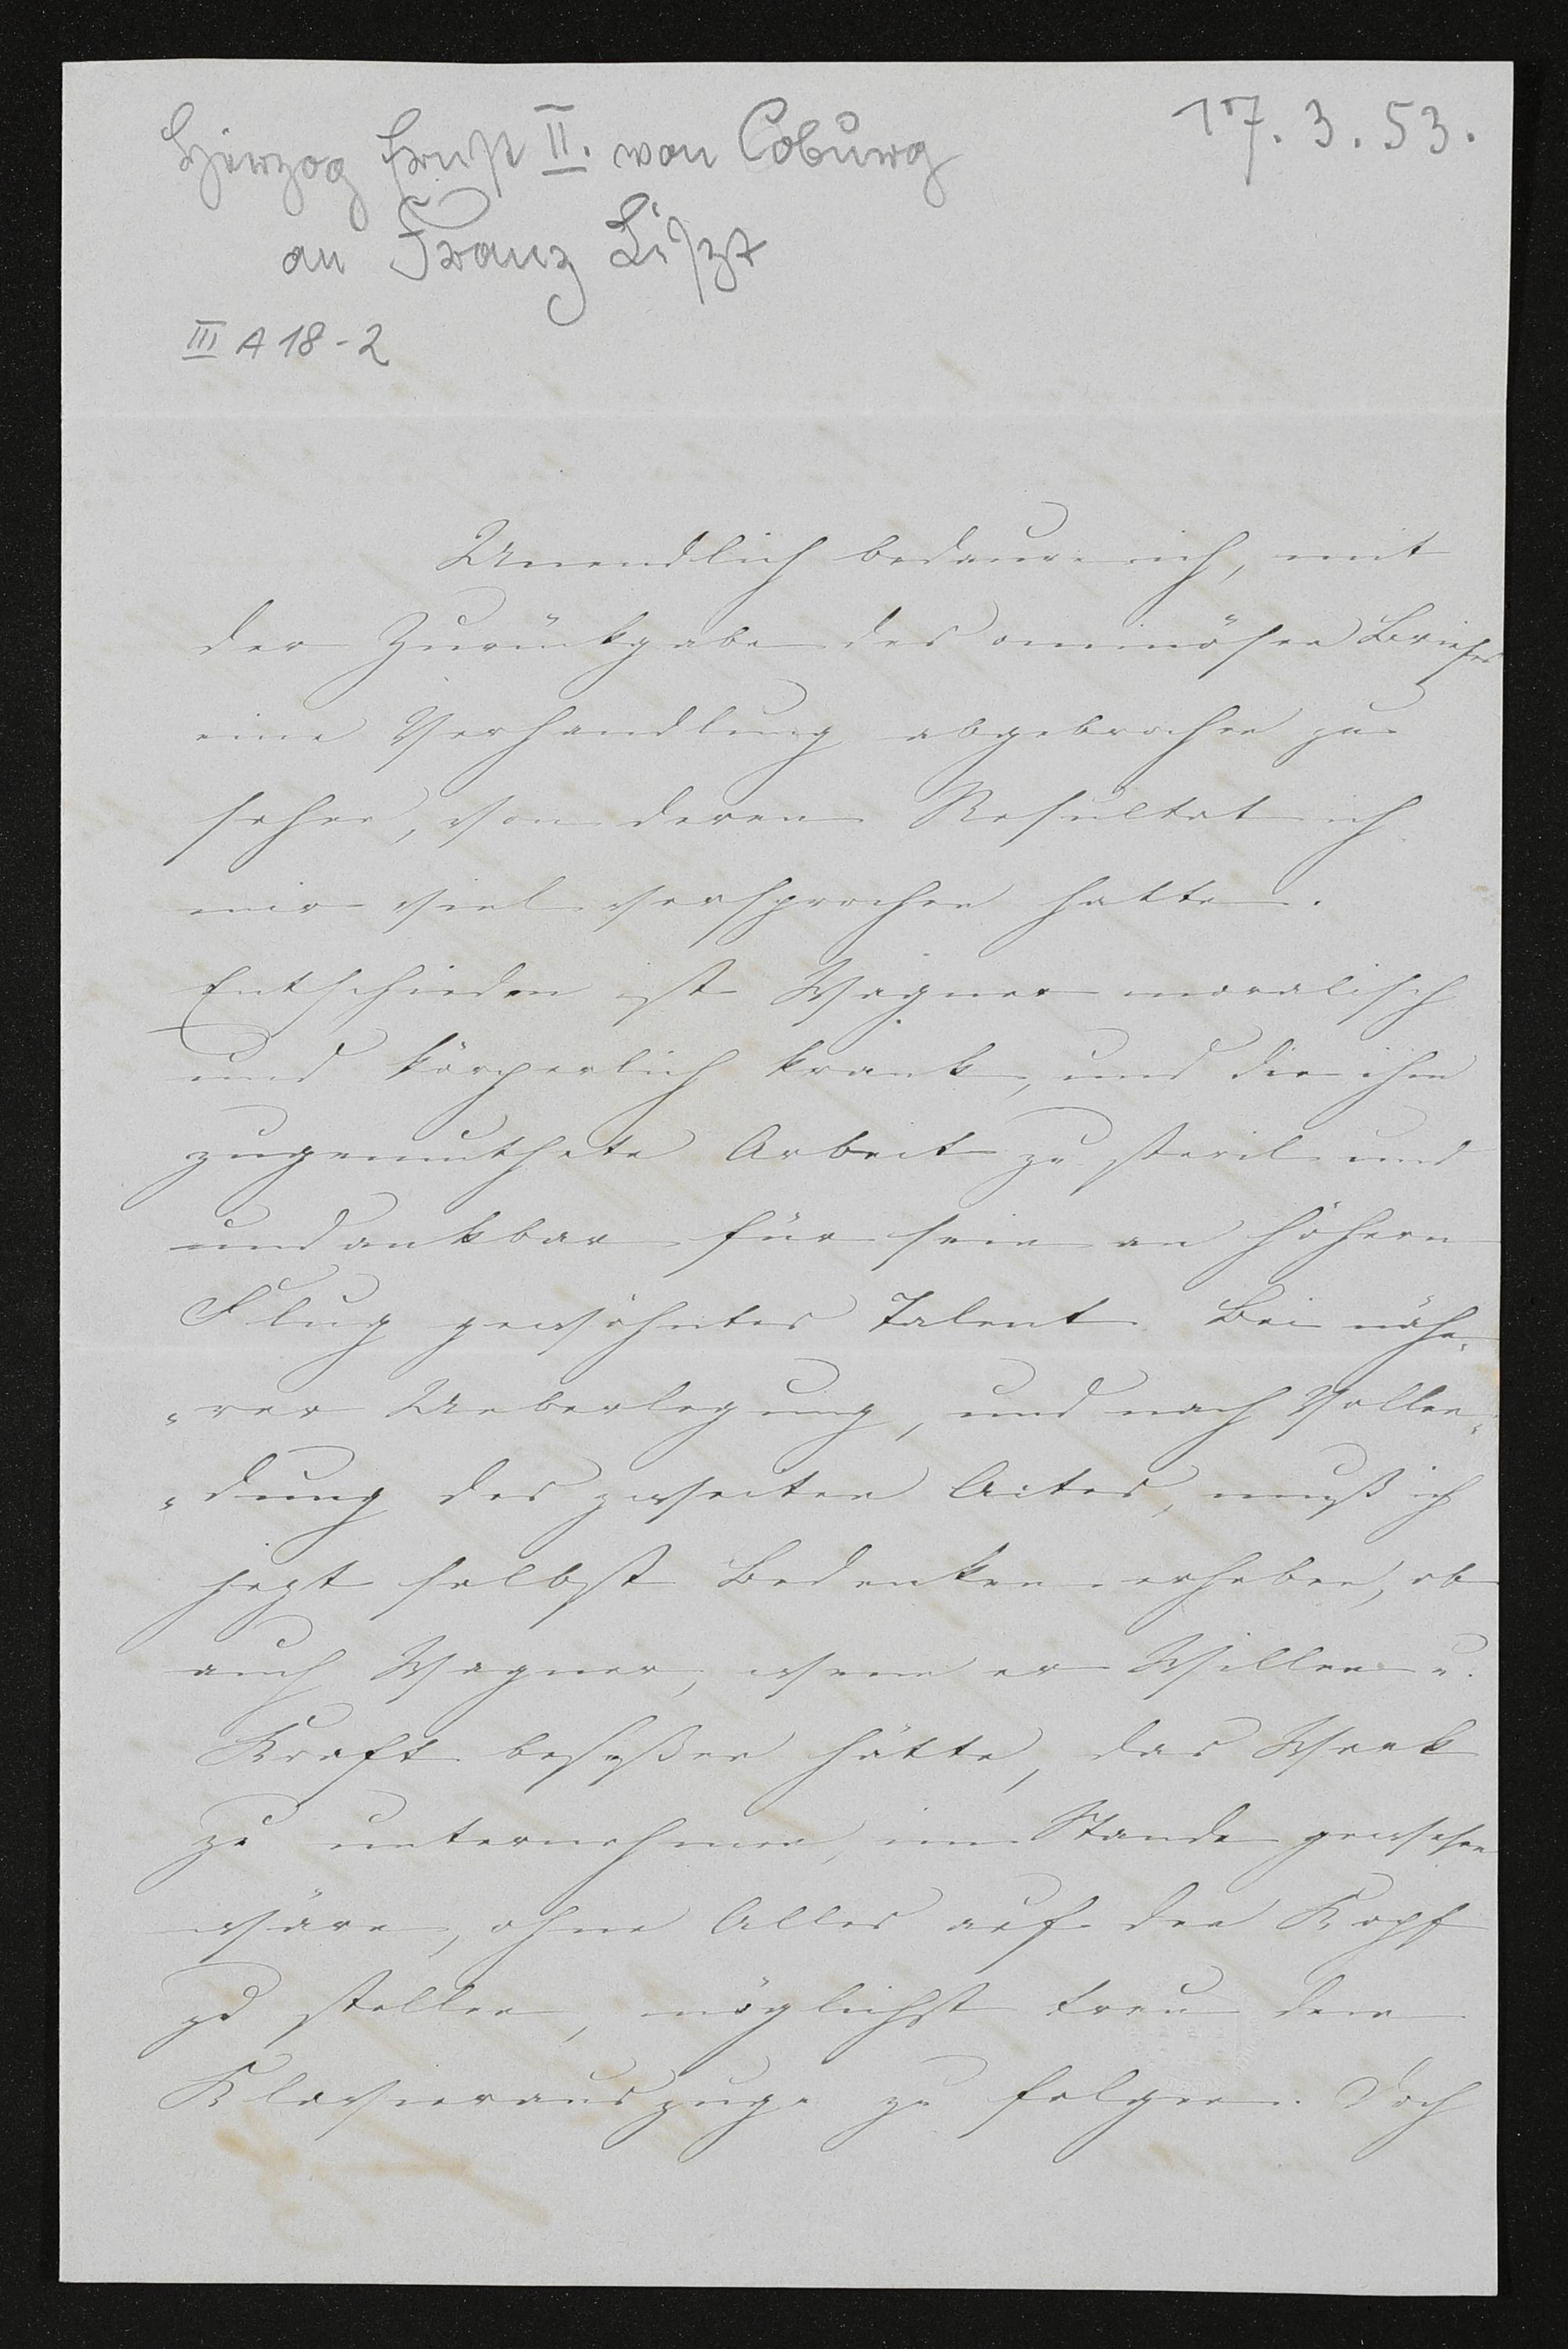 Herzog Ernst II. von Coburg
17. 3. 53.
an Franz Liszt
III A 18-2
Unendlich bedaure ich, mit
der Zurückgabe des ominösen Briefes
eine Verhandlung abgebrochen zu
sehen, von deren Resultat ich
mir viel versprochen hatte.
Entschieden ist Wagner moralisch
und körperlich krank, und die ihm
zugemuthete Arbeit zu steril und
undankbar für sein an höhern
Flug gewöhntes Talent. Bei nähe-
-rer Ueberlegung, und nach Vollen-
-dung des zweiten Actes, muß ich
jezt selbst Bedenken erheben, ob
auch Wagner, wenn er Willen u.
Kraft beseßen hätte, das Werk
zu unternehmen, im Stande gewesen
wäre, ohne Alles auf den Kopf
zu stellen, möglichst treu dem
Klavierauszuge zu folgen. Doch